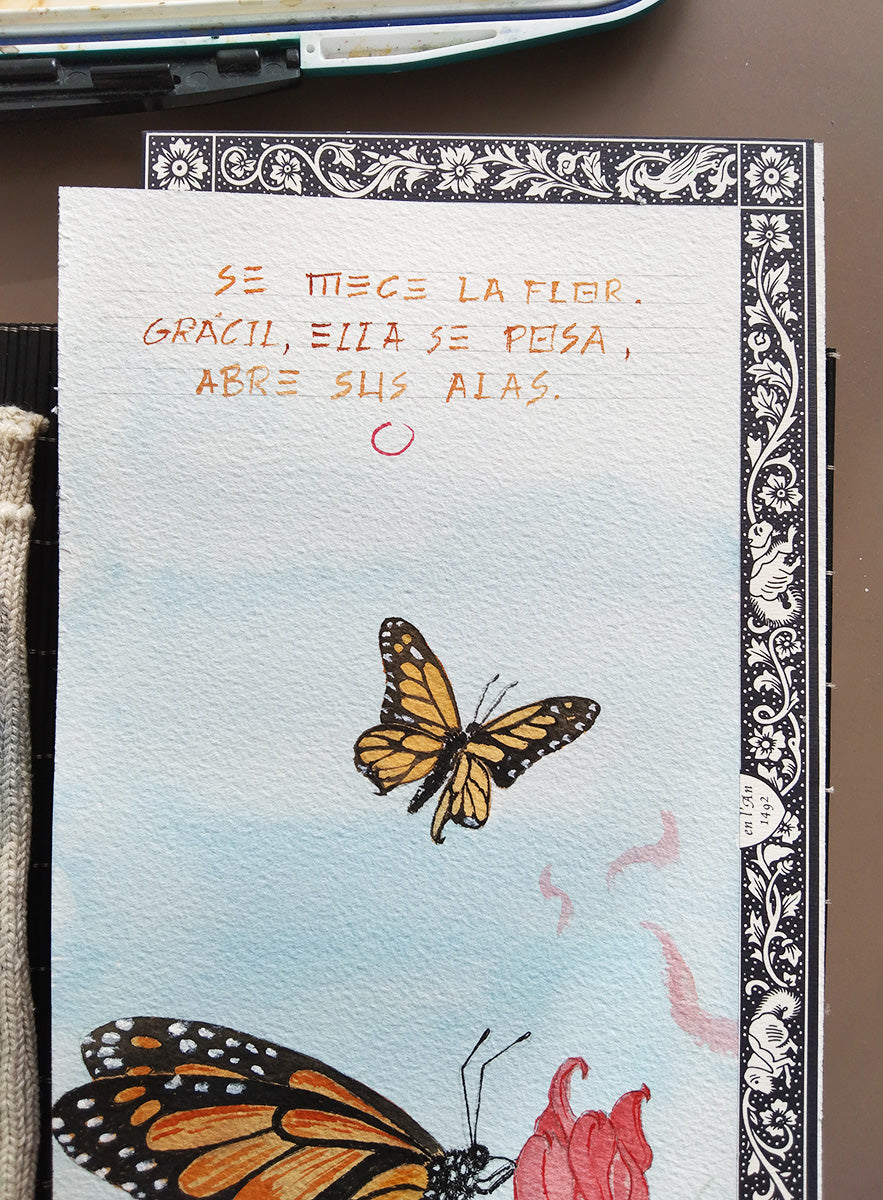 SE MECE LA FLOR.
GRÁCIL, ELLA SE POSA,
ABRE SUS ALAS.
en l'An
1492